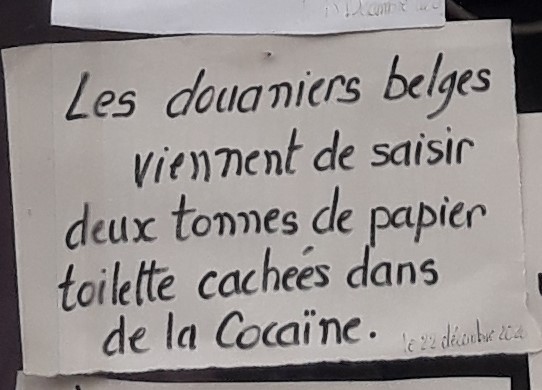 Les douaniers belges
viennent de saisir
deux tonnes de papier
toilette cacheés dans
de la Cocaïne.
le 22 décembre